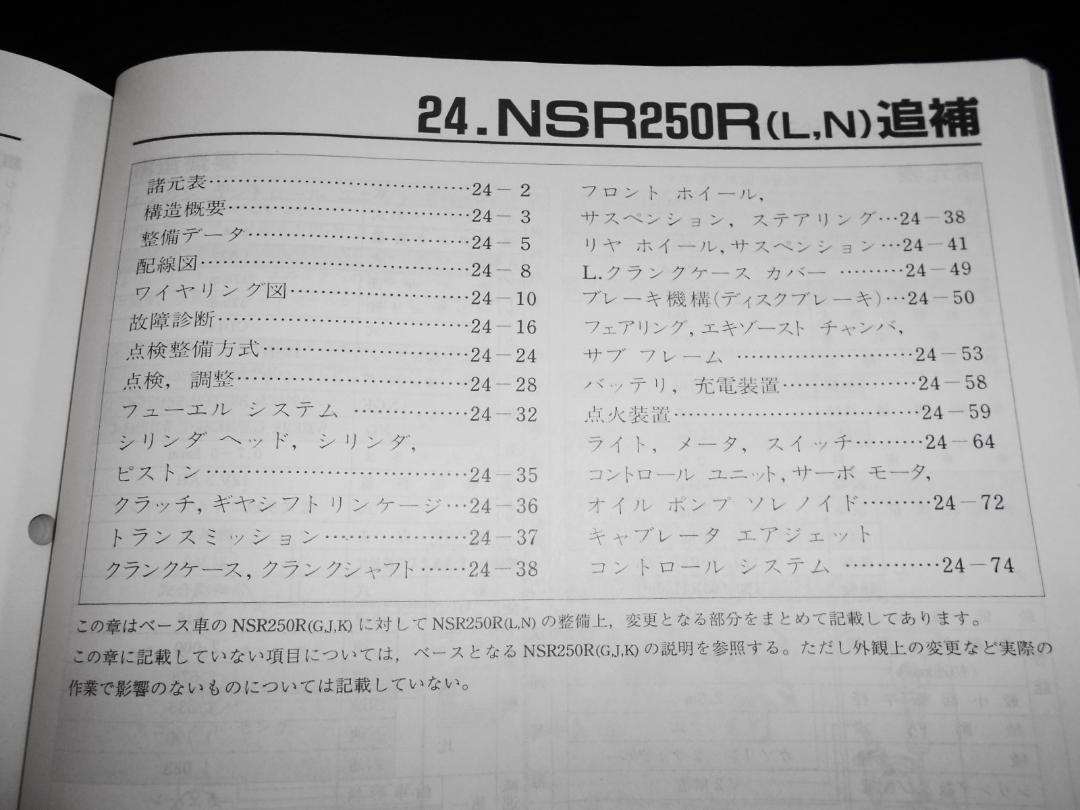 24.NSR250R(L,N)追補
諸元表……………………………24－2
構造概要…………………………24－3
整備データ………………………24－5
配線図……………………………24－8
ワイヤリング図…………………24－10
故障診断…………………………24－16
点検整備方式……………………24－24
点検，調整………………………24－28
フューエル システム …………24－32
シリンダ ヘッド，シリンダ，
ピストン…………………………24－35
クラッチ，ギヤシフトリンケージ…24－36
トランスミッション……………24－37
クランクケース，クランクシャフト……24－38
フロント ホイール，
サスペンション，ステアリング…24－38
リヤ ホイール，サスペンション…24－41
L.クランクケース カバー ………24－49
ブレーキ機構(ディスクブレーキ)…24－50
フェアリング，エキゾースト チャンバ，
サブ フレーム …………………24－53
バッテリ，充電装置……………24－58
点火装置…………………………24－59
ライト，メータ，スイッチ………24－64
コントロール ユニット，サーボ モータ，
オイル ポンプ ソレノイド………24－72
キャブレータ エアジェット
コントロール システム …………24－74
この章はベース車のNSR250R(G,J,K)に対してNSR250R(L,N)の整備上，変更となる部分をまとめて記載してあります。
この章に記載していない項目については，ベースとなるNSR250R(G,J,K)の説明を参照する。ただし外観上の変更など実際の
作業で影響のないものについては記載していない。